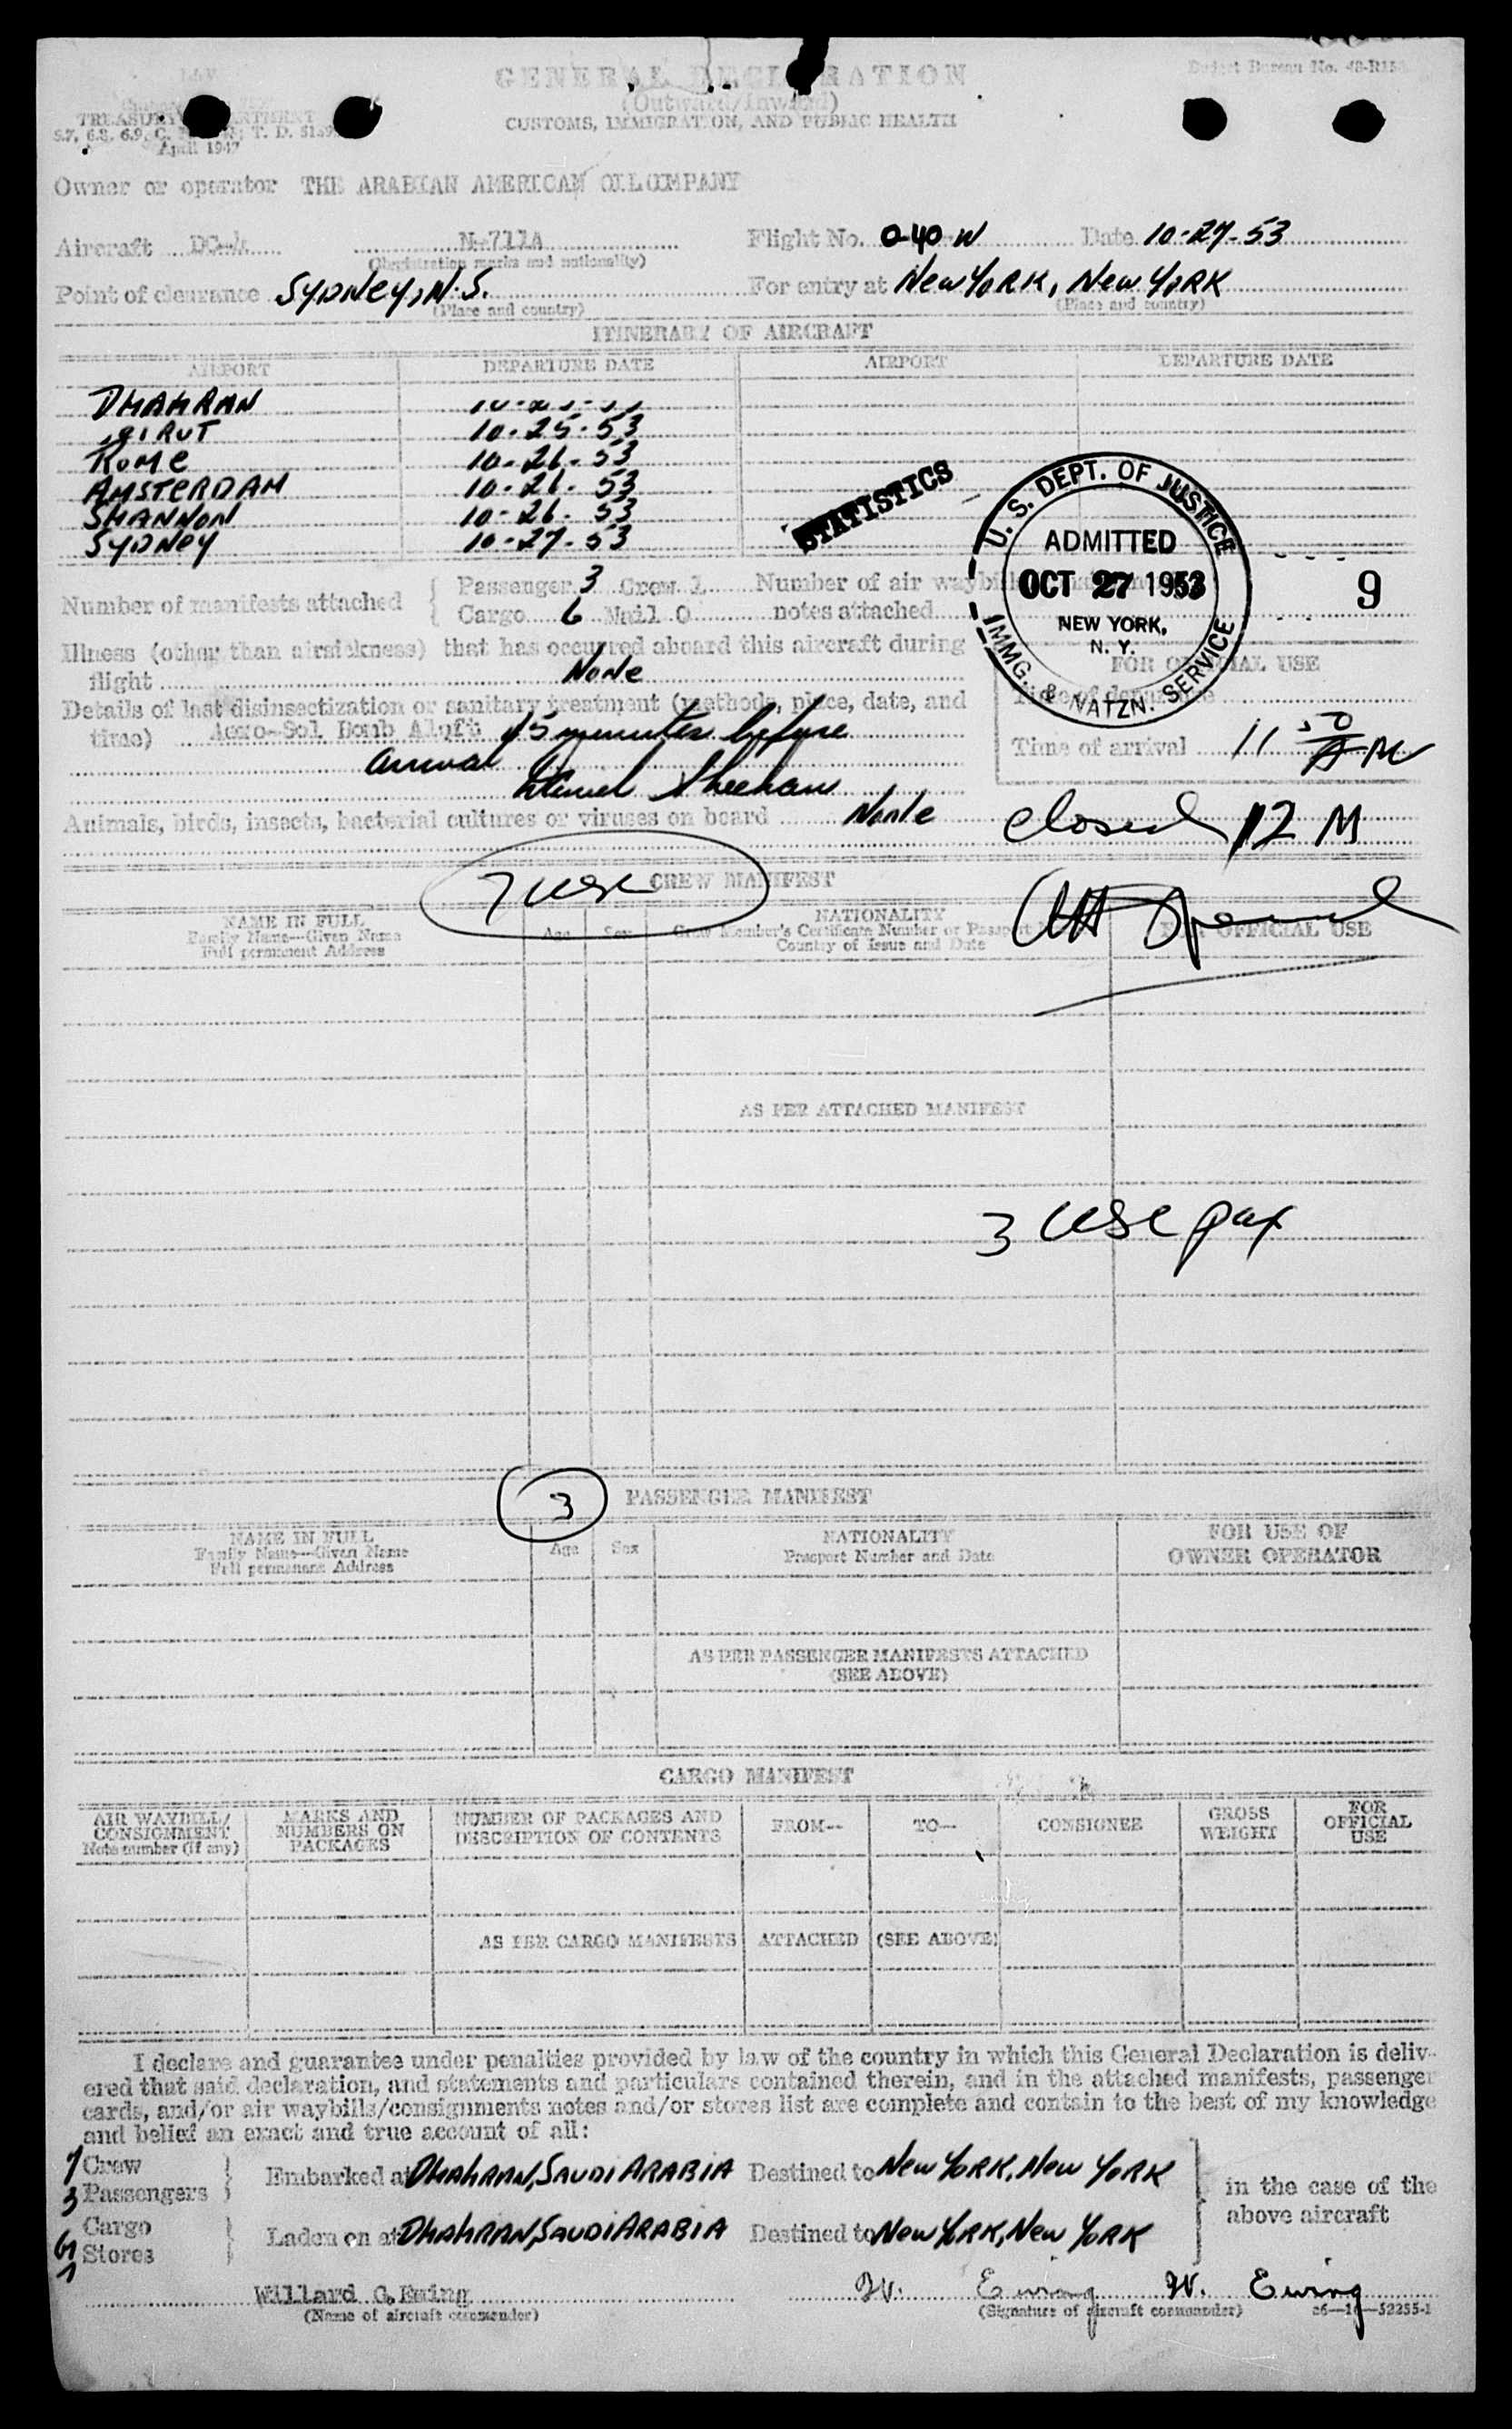 GENERAL DECLARATION
(Outward/Inward)
CUSTOMS, IMMIGRATION, AND PUBLIC HEALTH
Budget Bureau No.
TREASURY DEPARTMENT
April 1947
Owner or operator THE ARABIAN AMERICAN OIL OMPANY
Aircraft DC-4 N-711A Flight No. 0-40-W Date 10-27-53
(Registration marks and nationality)
Point of clearance SYDNEY, N.S. For entry at New York, New York
(Place and country) (Place and country)
ITINERARY OF AIRCRAFT
AIRPORT DEPARTURE DATE AIRPORT DEPARTURE DATE
DHAHRAN
BEIRUT 10-25-53
ROME 10-26-53
AMSTERDAM 10-26-53
SHANNON 10-26-53
SYDNEY 10-27-53
STATISTICS
U. S. DEPT. OF JUSTICE
ADMITTED
OCT 27 1953
NEW YORK,
N. Y.
IMMG. & NATZN. SERVICE
9
Number of manifests attached { Passenger 3 Crew 1 Number of air
Cargo 6 Mail 0 notes attached
Illness (other than airsickness) that has occurred aboard this aircraft during
flight None
FOR OFFICIAL USE
Details of last disinsectization or sanitary treatment (methods, place, date, and
time) Aero-Sol Bomb Aloft 45 minutes before
arrival
Daniel Sheehan
Time of departure
Time of arrival 11 50 AM
Animals, birds, insects, bacterial cultures or viruses on board None
closed 12 M
7 USC
CREW MANIFEST
NAME IN FULL
Family Name--Given Name
Full permanent Address
Age Sex
NATIONALITY
Crew Member's Certificate Number or Passport
Country of Issue and Date
FOR OFFICIAL USE
AS PER ATTACHED MANIFEST
3 USC pax
3 PASSENGER MANIFEST
NAME IN FULL
Family Name--Given Name
Full permanent Address
Age Sex
NATIONALITY
Passport Number and Date
FOR USE OF
OWNER OPERATOR
AS PER PASSENGER MANIFESTS ATTACHED
(SEE ABOVE)
CARGO MANIFEST
AIR WAYBILL/
CONSIGNMENT
Note number (if any)
MARKS AND
NUMBERS ON
PACKAGES
NUMBER OF PACKAGES AND
DESCRIPTION OF CONTENTS
FROM--
TO--
CONSIGNEE
GROSS
WEIGHT
FOR
OFFICIAL
USE
AS PER CARGO MANIFESTS ATTACHED (SEE ABOVE)
I declare and guarantee under penalties provided by law of the country in which this General Declaration is deliv-
ered that said declaration, and statements and particulars contained therein, and in the attached manifests, passenger
cards, and/or air waybills/consignments notes and/or stores list are complete and contain to the best of my knowledge
and belief an exact and true account of all:
7 Crew
3 Passengers } Embarked at DHAHRAN, SAUDI ARABIA Destined to New York, New York
in the case of the
above aircraft
6 Cargo
1 Stores } Laden on at DHAHRAN, SAUDI ARABIA Destined to New York, New York
Willard G. Ewing W. Ewing W. Ewing
(Name of aircraft commander) (Signature of aircraft commander) 16-52255-1